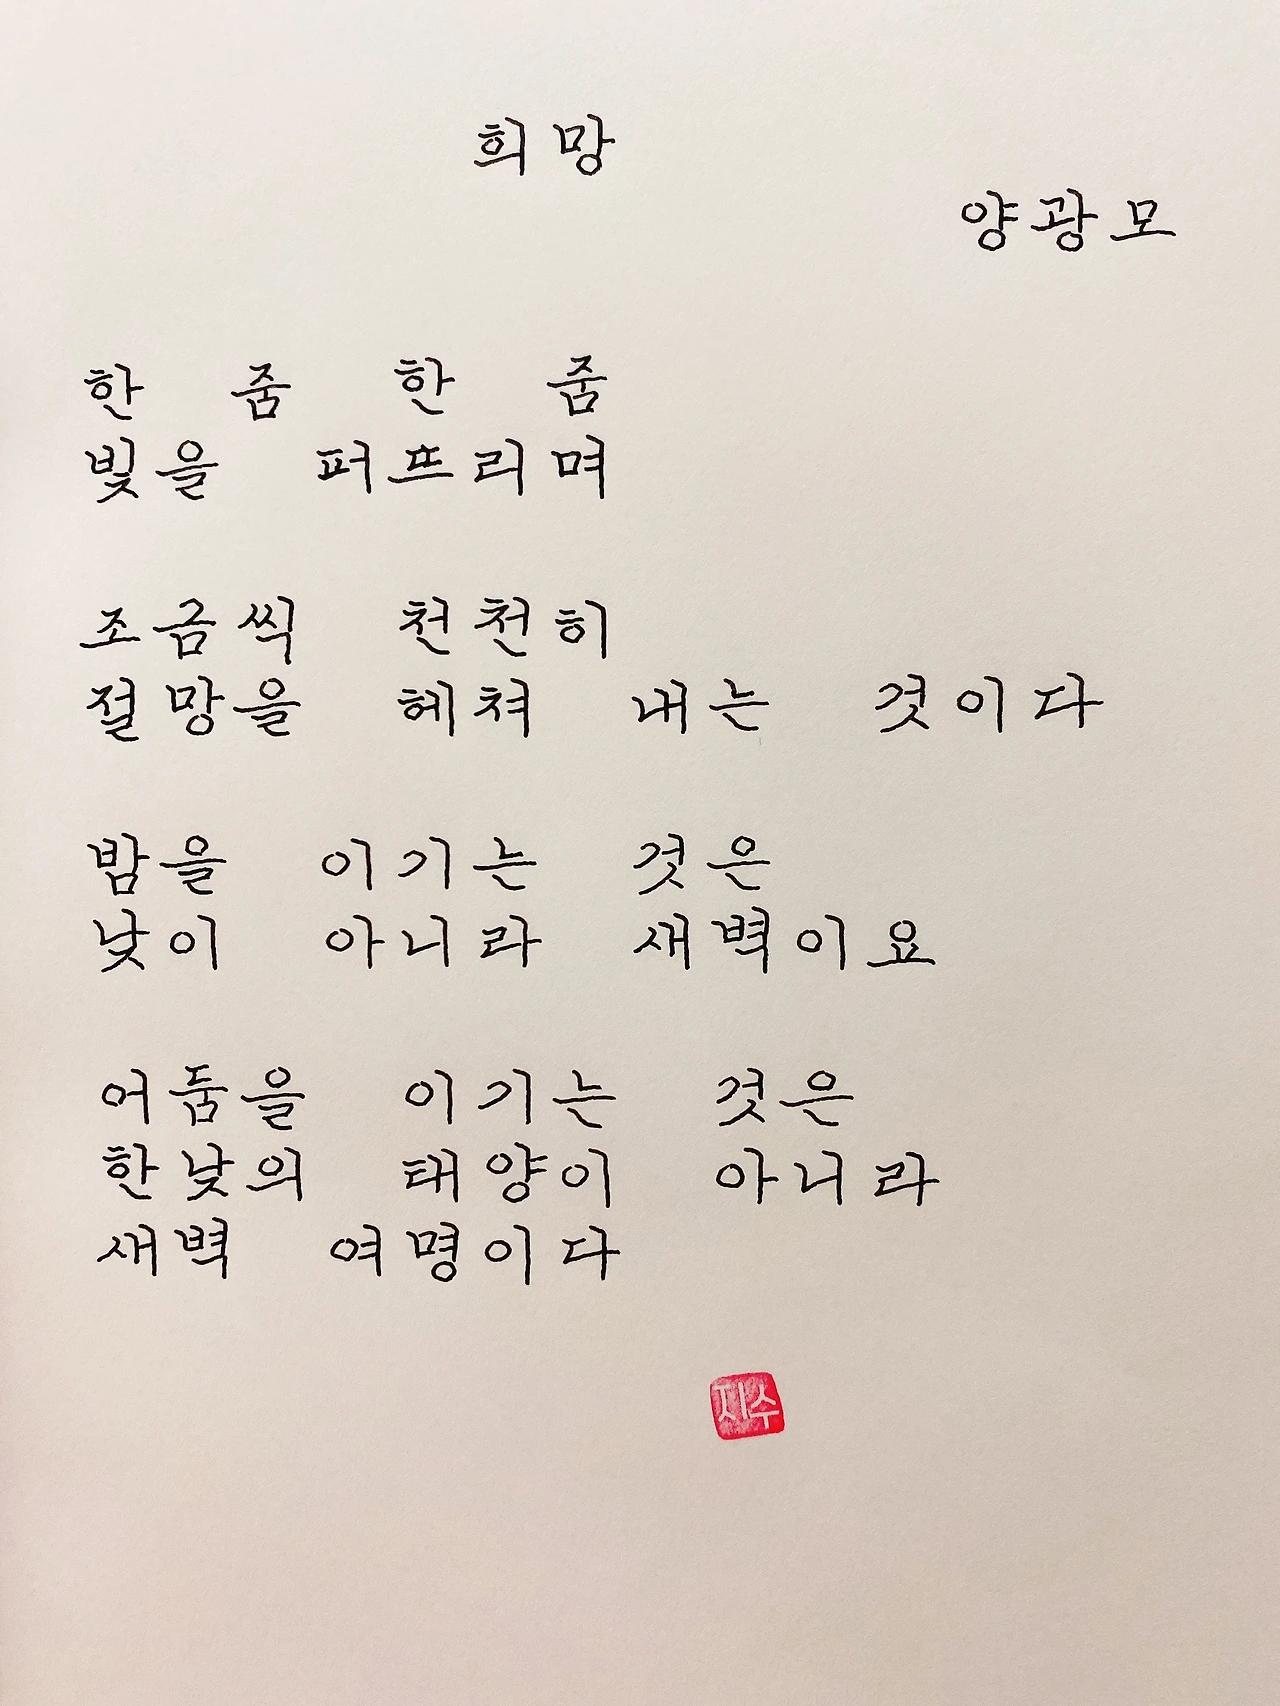 희망
양광모
한 줌 한 줌
빛을 퍼뜨리며
조금씩 천천히
절망을 헤쳐 내는 것이다
밤을 이기는 것은
낮이 아니라 새벽이요
어둠을 이기는 것은
한낮의 태양이 아니라
새벽 여명이다
지수